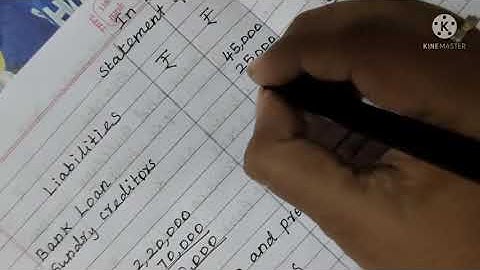 In
Statement
₹ ₹
Liabilities
Bank Loan 45,000
Sundry creditors 25,000
2,20,000
70,000
and
KINEMASTER